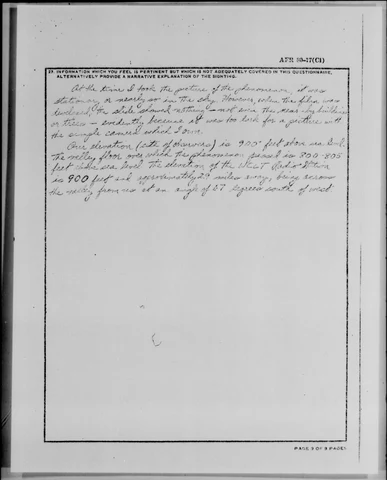 AFR 80-17(C1)
28. INFORMATION WHICH YOU FEEL IS PERTINENT BUT WHICH IS NOT ADEQUATELY COVERED IN THIS QUESTIONNAIRE,
ALTERNATIVELY PROVIDE A NARRATIVE EXPLANATION OF THE SIGHTING.
At the time I took the picture of the phenomenon, it was
stationary or nearly so in the sky. However, when the film was
developed, the slide showed nothing - not even the near-by building
or trees - evidently because it was too dark for a picture with
the simple camera which I own.
Our elevation (site of ) is 900 feet above sea level
the valley floor over which the phenomenon passed is 800-805
feet above sea level. The elevation of the Radio
is 900 feet and approximately miles away, being across
the valley from us at an angle of 27 degrees south of west.
PAGE 7 OF 8 PAGES